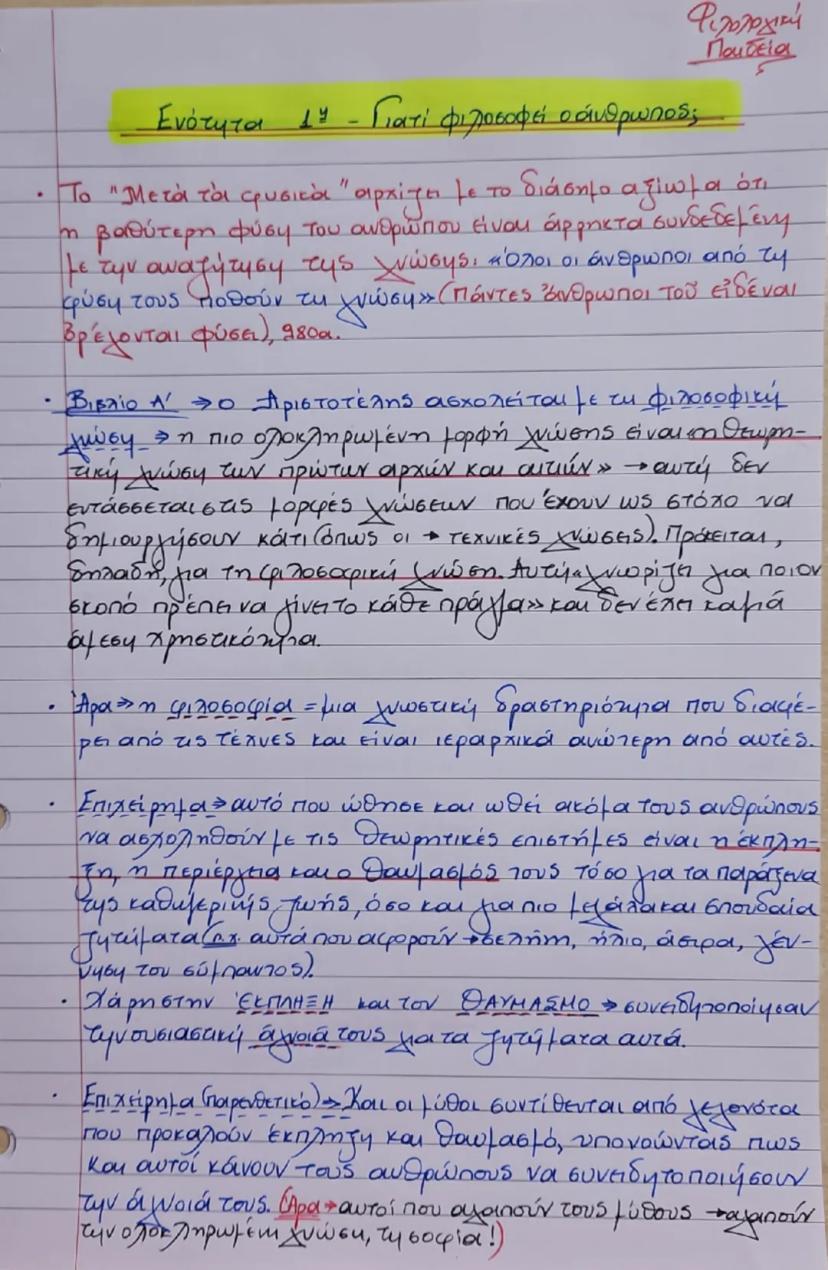 Φιλολογική
Παιδεία
Ενότητα 1η - Γιατί φιλοσοφεί ο άνθρωπος;
• Το "Μετά τα φυσικά" αρχίζει με το διάσημο αξίωμα ότι
η βαθύτερη φύση του ανθρώπου είναι άρρηκτα συνδεδεμένη
με την αναζήτηση της γνώσης. «Όλοι οι άνθρωποι από τη
φύση τους ποθούν τη γνώση» (πάντες ἄνθρωποι τοῦ εἰδέναι
ὀρέγονται φύσει), 980α.
• Βιβλίο Α' → ο Αριστοτέλης ασχολείται με τη φιλοσοφική
γνώση → η πιο ολοκληρωμένη μορφή γνώσης είναι «η θεωρη-
τική γνώση των πρώτων αρχών και αιτιών» → αυτή δεν
εντάσσεται στις μορφές γνώσεων που έχουν ως στόχο να
δημιουργήσουν κάτι (όπως οι → τεχνικές γνώσεις). Πρόκειται,
δηλαδή, για τη φιλοσοφική γνώση. Αυτή «γνωρίζει για ποιον
σκοπό πρέπει να γίνει το κάθε πράγμα» και δεν έχει καμιά
άμεση χρηστικότητα.
• Άρα → η φιλοσοφία = μια γνωστική δραστηριότητα που διαφέ-
ρει από τις τέχνες και είναι ιεραρχικά ανώτερη από αυτές.
• Επιχείρημα → αυτό που ώθησε και ωθεί ακόμα τους ανθρώπους
να ασχοληθούν με τις θεωρητικές επιστήμες είναι η έκπλη-
ξη, η περιέργεια και ο θαυμασμός τους τόσο για τα παράξενα
της καθημερινής ζωής, όσο και για πιο μεγάλα και σπουδαία
ζητήματα (π.χ. αυτά που αφορούν → σελήνη, ήλιο, άστρα, γέν-
νηση του σύμπαντος).
• Χάρη στην ΕΚΠΛΗΞΗ και τον ΘΑΥΜΑΣΜΟ → συνειδητοποίησαν
την ουσιαστική άγνοιά τους για τα ζητήματα αυτά.
• Επιχείρημα (παρενθετικό) → Και οι μύθοι συντίθενται από γεγονότα
που προκαλούν έκπληξη και θαυμασμό, υπονοώντας πως
και αυτοί κάνουν τους ανθρώπους να συνειδητοποιήσουν
την άγνοιά τους. (Άρα → αυτοί που αγαπούν τους μύθους → αγαπούν
την ολοκληρωμένη γνώση, τη σοφία!)